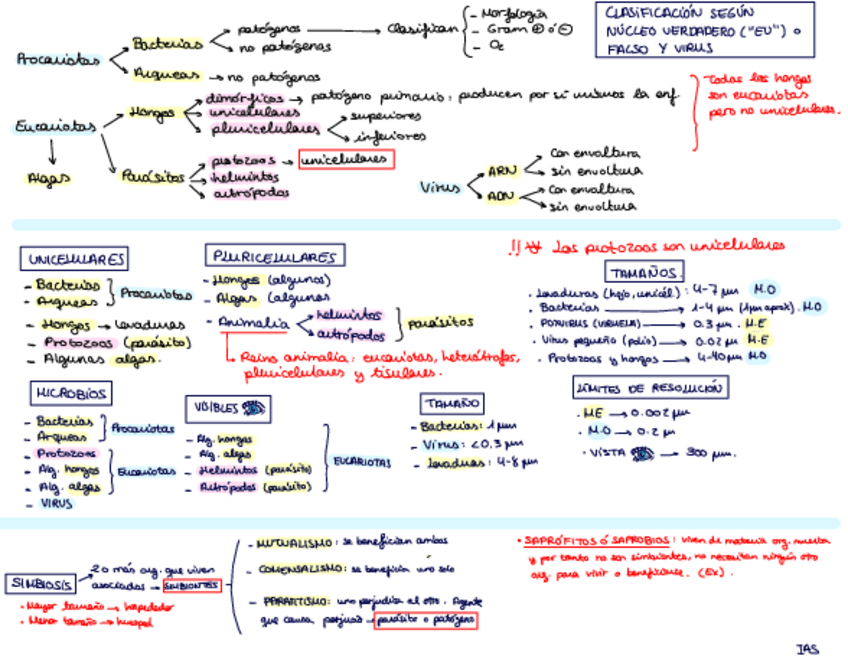 CLASIFICACIÓN SEGÚN
NÚCLEO VERDADERO ("EU") o
FALSO Y VIRUS
Procariotas
Bacterias
patógenos
no patógenos
clasifican
- Morfología
- Gram ⊕ ó ⊖
- O₂
Arqueas → no patógenos
Eucariotas
Hongos
dimórficos → patógeno primario: producen por sí mismos la enf
unicelulares
pluricelulares
superiores
inferiores
Todos los hongos
son eucariotas
pero no unicelulares.
Algas
Parásitos
protozoos → unicelulares
helmintos
artrópodos
Virus
ARN
Con envoltura
sin envoltura
ADN
Con envoltura
sin envoltura
UNICELULARES
- Bacterias
- Arqueas
Procariotas
- Hongos → Levaduras
- Protozoos (parásito)
- Algunas algas.
PLURICELULARES
- Hongos (algunos)
- Algas (algunas
- Animalia
helmintos
artrópodos
parásitos
Reino animalia: eucariotas, heterótrofos,
pluricelulares y tisulares.
!! Los protozoos son unicelulares
TAMAÑOS.
· Levaduras (hojo, unicél): 4-7 µm M.O
· Bacterias → 1-4 µm (1µm aprox). M.O
· POXVIRUS (VIRUELA) → 0.3 µm. M.E
· Virus pequeño (polio) → 0.02 µm M.E
· Protozoos y hongos → 4-40µm M.O
MICROBIOS
- Bacterias
- Arqueas
Procariotas
- Protozoos
- Alg. hongos
- Alg. algas
Eucariotas
- VIRUS
VISIBLES
- Alg. hongos
- Alg. algas
- Helmintos (parásito)
- Artrópodos (parásito)
EUCARIOTAS
TAMAÑO
- Bacterias: 1 µm
- Virus: <0.3 µm
- Levaduras: 4-8 µm
LÍMITES DE RESOLUCIÓN
· ME → 0.002 µm
· M.O → 0.2 µm
· VISTA → 300 µm.
SIMBIOSIS
2 o más org. que viven
asociados → SIMBIONTES
· Mayor tamaño → hospedador
· Menor tamaño → huésped
- MUTUALISMO: se benefician ambos
- COMENSALISMO: se beneficia uno solo
- PARASITISMO: uno perjudica al otro. Agente
que causa perjuicio → parásito o patógeno
· SAPRÓFITOS Ó SAPROBIOS: viven de materia org. muerta
y por tanto no son simbiontes, no necesitan ningún otro
org. para vivir o beneficiarse. (Ex).
IAS